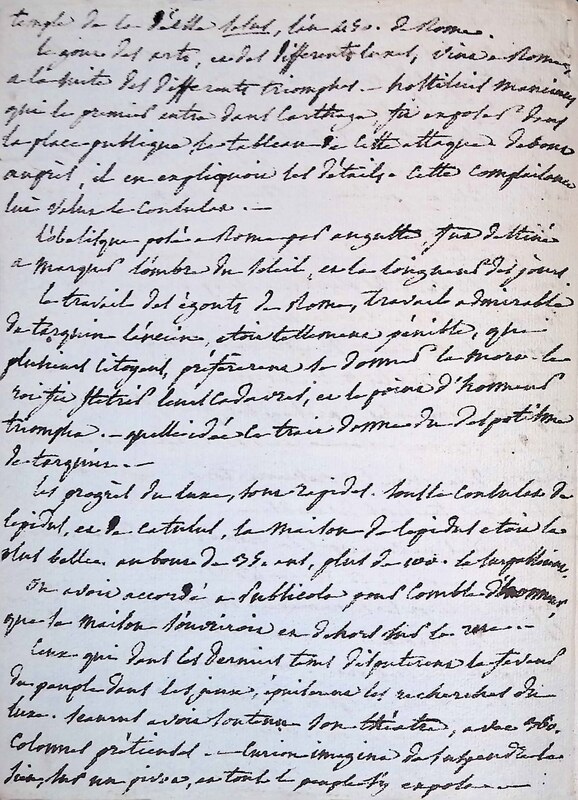 temple de la déesse Salus, l'an 450. de Rome.
le gout des arts, et des differents luxes, vint a Rome,
a la suite des differents triomphes. — hostilius mancinus
qui le premier entra dans Carthage, fit exposer dans
la place publique le tableau de cette attaque. debout
auprès, il en expliquoit les détails. Cette complaisance
lui valut le consulat. —
L'obélisque posé a Rome par auguste fut destiné
a marquer l'ombre du soleil, et la longueur des jours
le travail des égouts de Rome, travail admirable
de tarquin l'ancien, etoit tellement pénible, que
plusieurs citoyens, préférerent se donner la mort. le
roi fit flétrir leurs cadavres, et le point d'honneur
triompha. — quelle idée ce trait donne du despotisme
de tarquin. —
Les progrès du luxe, sont rapides. sous le consulat de
lepidus, et de catulus, la maison de lepidus etoit la
plus belle. au bout de 35. ans, plus de 100. la surpassoient.
On avoit accordé a Publicola pour comble d'honneur,
que sa maison s'ouvriroit en dehors sur la rue. —
Ceux qui dans les derniers tems disputerent la faveur
du peuple dans les jeux, épuiserent les recherches du
luxe. Scaurus avoit soutenu son théatre, avec 360.
colonnes — Curion imagina de suspendre le
sien, sur un pivot, et tout le peuple s'y exposa. —